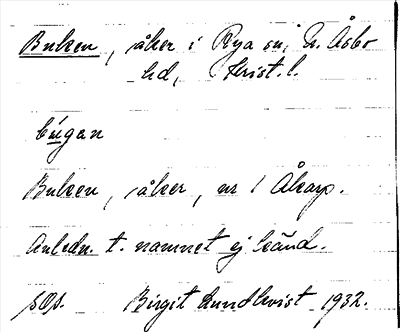 Buken, åker i Rya sn, N. Åsbo
hd, Krist. l.
bú̱gan
Buken, åker, nr 1 Åkarp.
Anledn. t. namnet ej känd.
sOs. Birgit Lundkvist 1932.